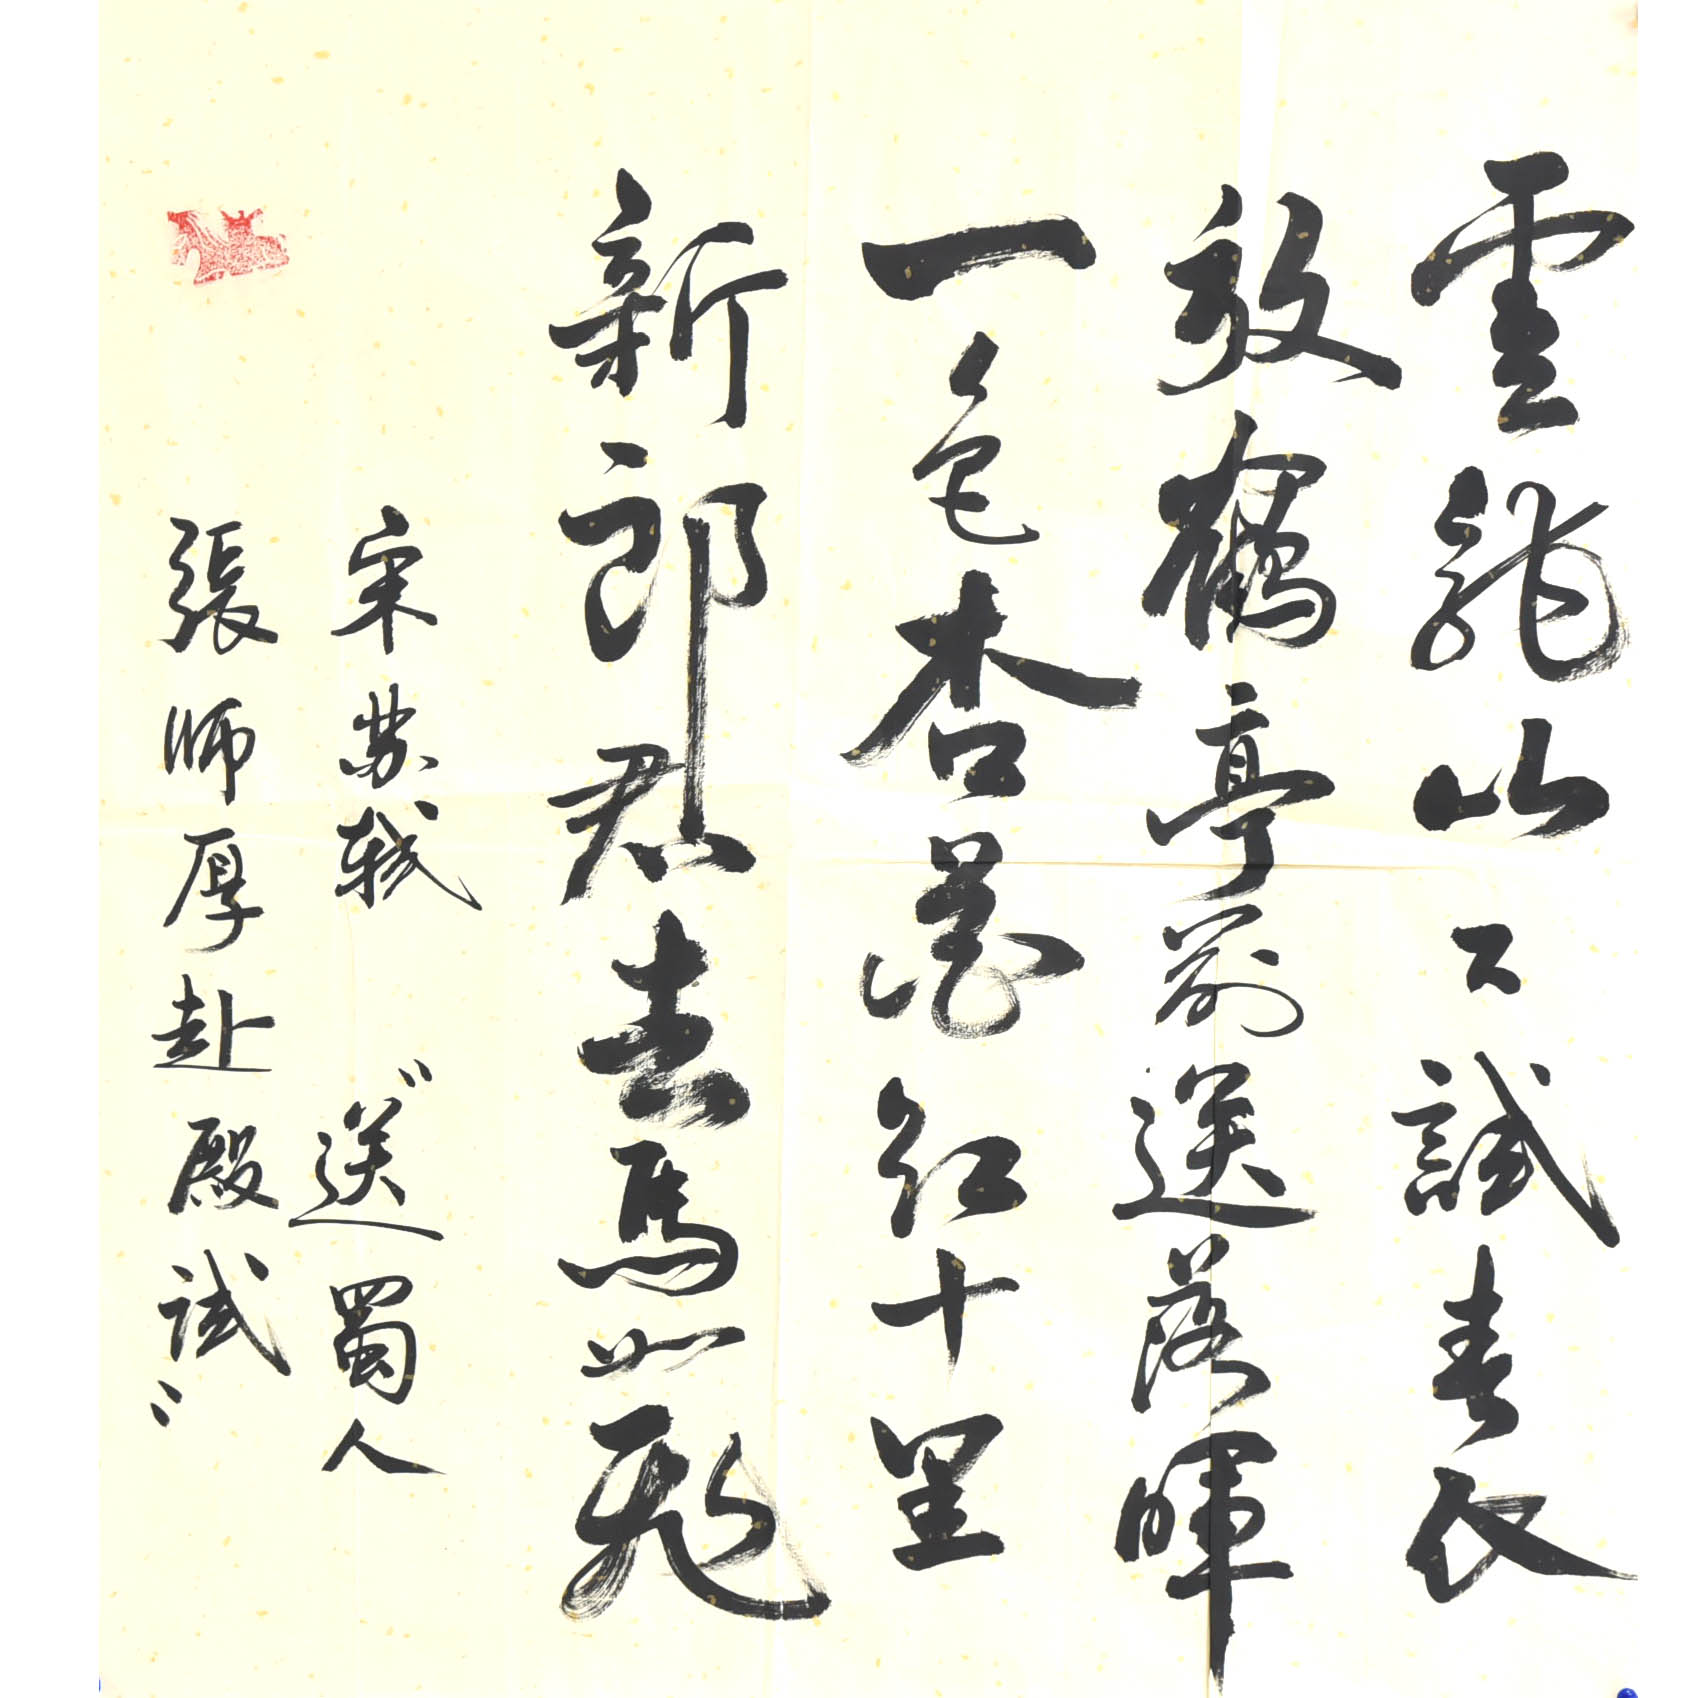 雲龍山下試春衣
放鶴亭前送落暉
一色杏花红十里
新郎君去馬如飛
宋苏轼 “送蜀人
張师厚赴殿试”